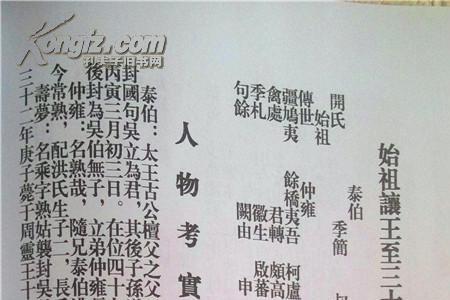 Kongfz.com
孔夫子旧书网
始祖讓王至三
泰伯
開氏 季簡
始祖
傳世 仲雍
疆鳩夷 餘橋夷吾 柯盧
禽處 君轉 頗高
季札 徽生 啟蕃
句餘 闕由 申
人物考實
泰伯：太王古公檀父之父
封國句吳立為君，其後子孫
丙寅三月初三日。在位四十
後封為吳伯無子，立弟仲雍
仲雍：名熟哉，隨兄泰伯
今常熟，配洪氏生子二，長
壽夢：名乘字熟姑襲封吳
三十二年庚子薨于周靈王十